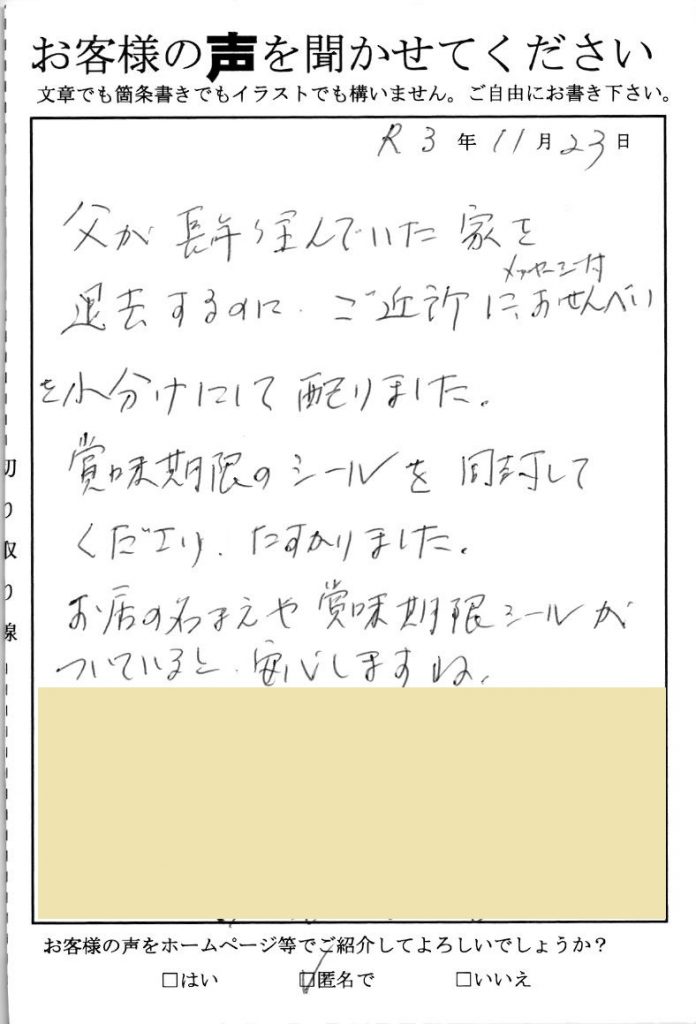 お客様の声を聞かせてください
文章でも箇条書きでもイラストでも構いません。ご自由にお書き下さい。
R3年11月23日
父が長年住んでいた家を
メッセージ付
退去するのに、ご近所に、おせんべい
を小分けにして配りました。
賞味期限のシールを同封して
くださり、たすかりました。
お店の名まえや賞味期限シールが
ついていると、安心しますね。
切り取り線
お客様の声をホームページ等でご紹介してよろしいでしょうか？
□はい □匿名で □いいえ